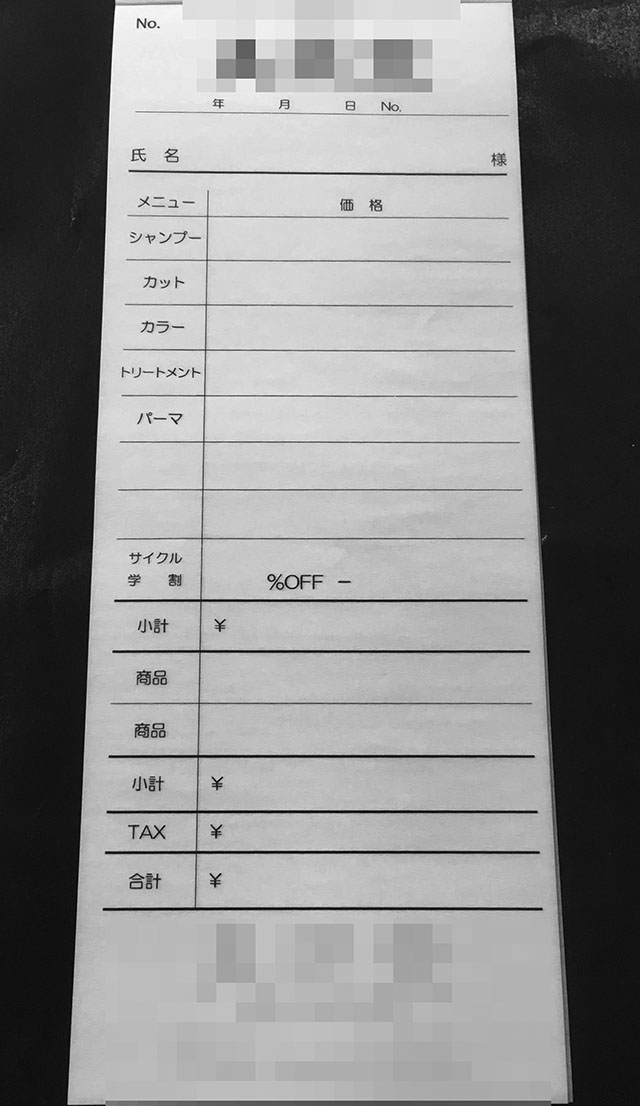 No.
年 月 日 No.
氏 名 様
メニュー 価 格
シャンプー
カット
カラー
トリートメント
パーマ
サイクル
学 割 %OFF −
小計 ¥
商品
商品
小計 ¥
TAX ¥
合計 ¥